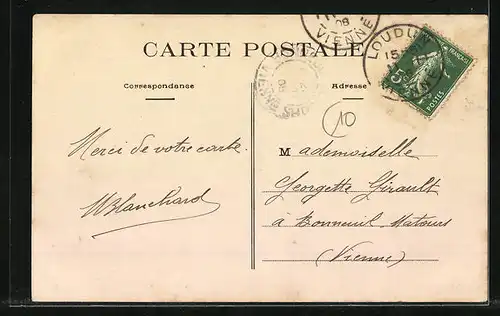 08
VIENNE
LOUDUN
15
CARTE POSTALE
FRANÇAISE
5c
POSTES
Correspondance
Adresse
10
Merci de votre carte.
Mademoiselle
WBlanchard
Georgette Girault
à Bonneuil-Matours
(Vienne)